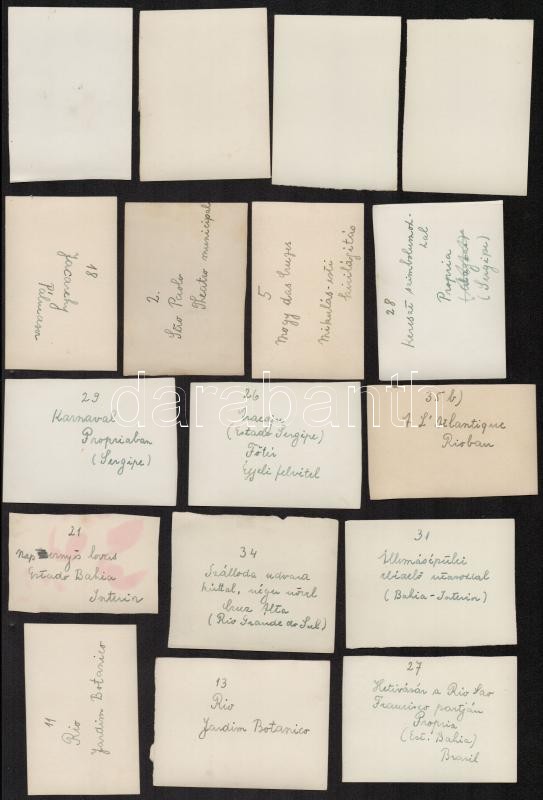 18
Jacarehy
Pálmasor
2.
São Paolo
Theatro municipal
5
Mogy das Cruzes
Mikulás-esti
kivilágitás
28
Kereszt szimbolumok-
kal
Propria
(Sergipe)
29
Karnaval
Propriaban
(Sergipe)
26
(Estado Sergipe)
Főtér
Éjjeli felvétel
35 b)
A L'Atlantique
Rioban
21
Napernyős lovas
Estado Bahia
Interior
34
Szálloda udvara
kúttal, néger nővel
Cruz Alta
(Rio Grande do Sul)
31
Állomásépület
étkező utasokkal
(Bahia-Interior)
11
Rio
Jardim Botanico
13
Rio
Jardim Botanico
27
Hetivásár a Rio Sao
Francisco partján
Propria
(Est: Bahia)
Brasil
darabanth